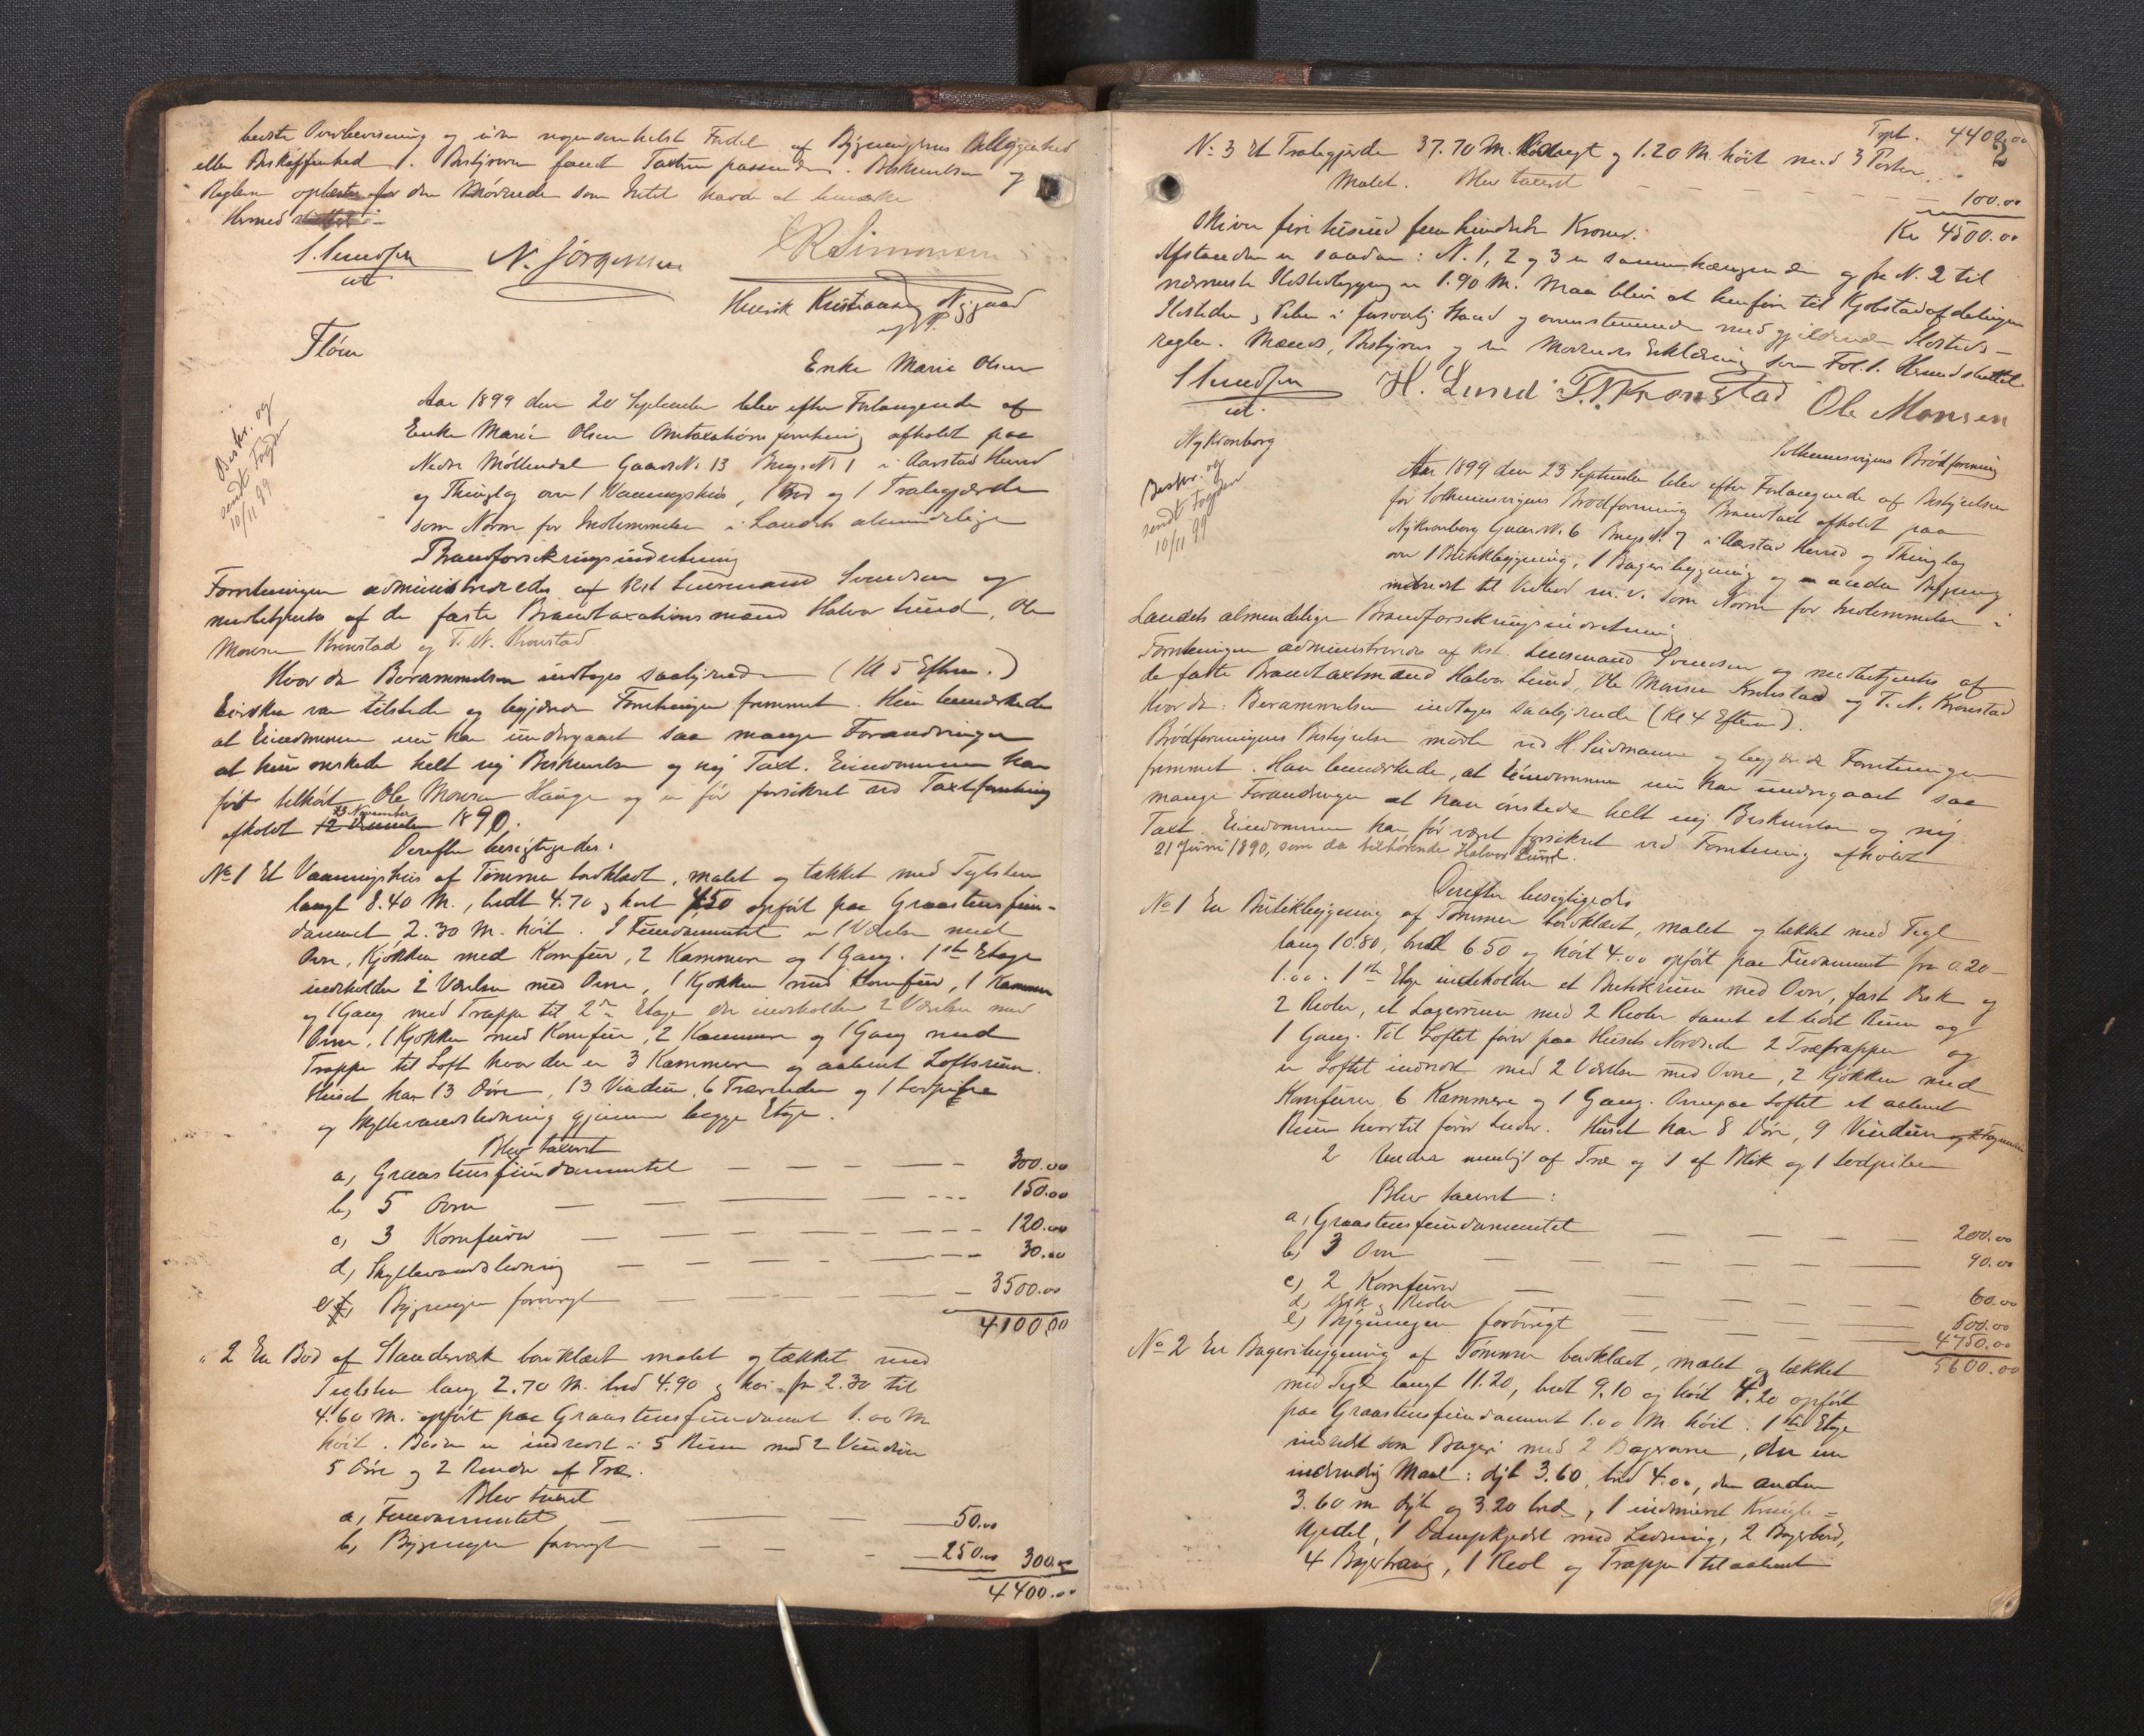 bedste Overbevisning og uden nogensomhelst Fordel af Bygningernes Beliggenhed
eller Beskaffenhed. Bestyreren fandt Taxten passende. Beskrivelsen og
Reglen oplæstes for den Mødende som Intet havde at bemærke
Hermed sluttet
S. Svendsen N. Jørgensen R Simonsen
cst
Henrik Kristiansen Nygaard
m. f. P.
Fløen
Enke Marie Olsen
Beskr. og
sendt Fogden
10/11 99
Aar 1899 den 20 September blev efter Forlangende af
Enke Marie Olsen Omtaxationsforretning afholdt paa
Nedre Møllendal GaardsN. 13 BrugsN. 1 i Aarstad Herred
og Thinglag over 1 Vaaningshus, 1 Bod og 1 Trælegjærde
som Norm for Indlemmelse i Landets almindelige
Brandforsikringsindretning
Forretningen administreredes af Kst Lensmand Svendsen og
medbetjentes af de faste Brandtaxationsmænd Halvor Lund, Ole
Monsen Kronstad og T. N. Kronstad
Hvorda Berammelsen indtages saalydende (Kl 5 Efterm.)
Eiersken var tilstede og begjærede Forretningen fremmet. Hun bemærkede
at Eiendommen nu har undergaaet saa mange Forandringer
at hun ønskede helt ny Beskrivelse og ny Taxt. Eiendommen har
før tilhørt Ole Monsen Hauge og er før forsikret ved Taxtforretning
afholdt 12 23 November 1890.
Derefter besigtigedes:
No 1 Et Vaaningshus af Tømmer bordklædt, malet og tækket med Teglsten
langt 8.40 M., bredt 4.70 og høit 4.50 opført paa Graastensfun-
dament 2.30 M. høit. I Fundamentet er 1 Værelse med
Ovn, Kjøkken med Komfur, 2 Kammere og 1 Gang. 1ste Etage
indeholder 2 Værelser med Ovne, 1 Kjøkken med Komfur, 1 Kammer
og 1 Gang med Trappe til 2den Etage der indeholder 2 Værelser med
Ovne, 1 Kjøkken med Komfur, 2 Kammere og 1 Gang med
Trappe til Loft hvor der er 3 Kammere og aabent Loftsrum.
Huset har 13 Døre, 13 Vinduer, 6 Trærender og 1 Lodpibe
og Skyllevandsledning gjennem begge Etager.
Blev taxeret
a, Graastensfundamentet 300.00
b, 5 Ovne 150.00
c, 3 Komfurer 120.00
d, Skyllevandsledning 30.00
e, Bygningen forøvrigt 3500.00
4100.00
" 2 En Bod af Standerværk bordklædt malet og tækket med
Teglsten lang 2.70 M. bred 4.90 og høi fra 2.30 til
4.60 M. opført paa Graastensfundament 1.00 M
høit. Boden er indredet i 5 Rum med 2 Vinduer
5 Døre og 2 Render af Træ.
Blev taxeret
a, Fundamentet 50.00
b, Bygningen forøvrigt 250.00 300.00
4400.00
Trspt. 4400.00
No 3 Et Trælegjerde 37.70 M. langt og 1.20 M. høit med 3 Porter
Malet. Blev taxeret 100.00
Skriver fire tusind fem hundrede Kroner. Kr 4500.00
Afstanden er saadan: N. 1, 2 og 3 er sammenhængende og fra N. 2 til
nærmeste Ildstedbygning er 1.90 M. Maa blive at henføre til Kjøbstadafdelingen
Ildsteder og Piber i forsvarlig Stand og overensstemmende med gjeldende Ildsteds-
regler. Mænds, Bestyrers og den Mødendes Erklæring som Fol. 1. Hermed sluttet
S Svendsen H. Lund T. N. Kronstad Ole Monsen
cst.
NyKronborg
Beskr. og
sendt Fogden
10/11 99
Solheimsvigens Brødforening
Aar 1899 den 23 September blev efter Forlangende af Bestyrelsen
for Solheimsvigens Brødforening Brandtaxt afholdt paa
NyKronborg GaardsN. 6 BrugsN. 7 i Aarstad Herred og Thinglag
over 1 Butikbygning, 1 Bageribygning og en anden Bygning
indredet til Vedbod m. v. som Norm for Indlemmelse i
Landets almindelige Brandforsikringsindretning
Forretningen administreredes af Kst. Lensmand Svendsen og medbetjentes af
de faste Brandtaxtmænd Halvor Lund, Ole Monsen Kronstad og T. N. Kronstad
Hvorda: Berammelsen indtages saalydende (Kl 4 Efterm).
Brødforeningens Bestyrelse mødte ved H. Lindmann og begjærede Forretningen
fremmet. Han bemærkede, at Eiendommen nu har undergaaet saa
mange Forandringer at han ønskede helt ny Beskrivelse og ny
Taxt. Eiendommen har før været forsikret ved Forretning afholdt
21 Juni 1890, som da tilhørende Halvor Lund.
Derefter besigtigedes
No 1 En Butikbygning af Tømmer bordklædt, malet og tækket med Tegl
lang 10.80, bred 6.50 og høit 4.00 opført paa Fundament fra 0.20 –
1.00. 1ste Etage indeholder et Butikrum med Ovn, fast Disk og
2 Reoler, et Lagerrum med 2 Reoler samt et lidet Rum og
1 Gang. Til Loftet fører paa Husets Nordside 2 Trætrapper og
er Loftet indredet med 2 Værelser med Ovne, 2 Kjøkken med
Komfurer, 6 Kammere og 1 Gang. Ovenpaa Loftet et aabent
Rum hvortil fører Luger. Huset har 8 Døre, 9 Vinduer
2 Render nemlig 1 af Træ og 1 af Blik og 1 Lodpibe
Blev taxeret:
a, Graastensfundamentet 200.00
b, 3 Ovne 90.00
c, 2 Komfurer 60.00
d, Disk og Reoler 500.00
e, Bygningen forøvrigt 4750.00
5600.00
No 2 En Bageribygning af Tømmer bordklædt, malet og tækket
med Tegl langt 11.20, bredt 9.10 og høit 4.20 opført
paa Graastensfundament 1.00 M. høit. 1ste Etage
indredet som Bageri med 2 Bagerovne, den ene
indvendig Maal: dyb 3.60, bred 4.00, den anden
3.60 m dyb og 3.20 bred, 1 indmuret Kringle-
kjedel, 1 Dampkjedel med Ledning, 2 Bagerbord,
4 Bagertraug, 1 Reol og Trappe til aabent